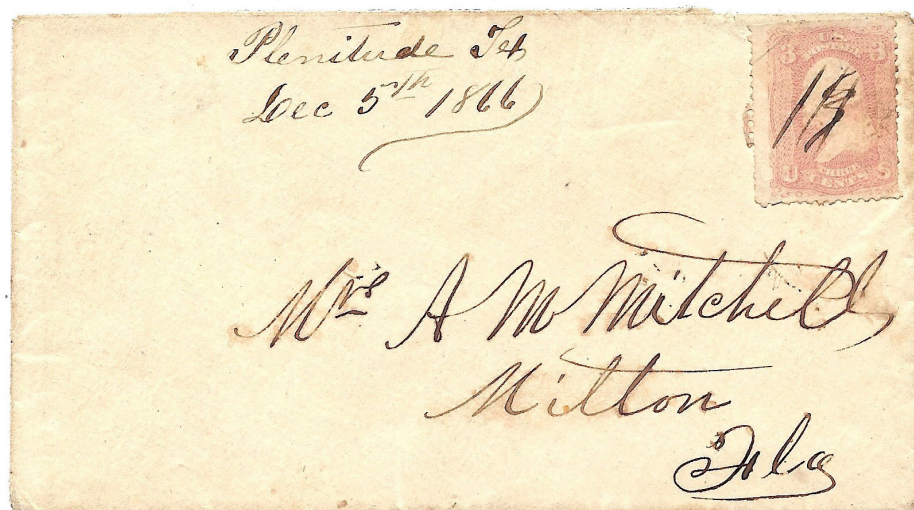 Plenitude Tex
Dec 5th 1866
U.S. POSTAGE
3 3
U THREE S
CENTS
Mrs A M Mitchell
Milton
Fla